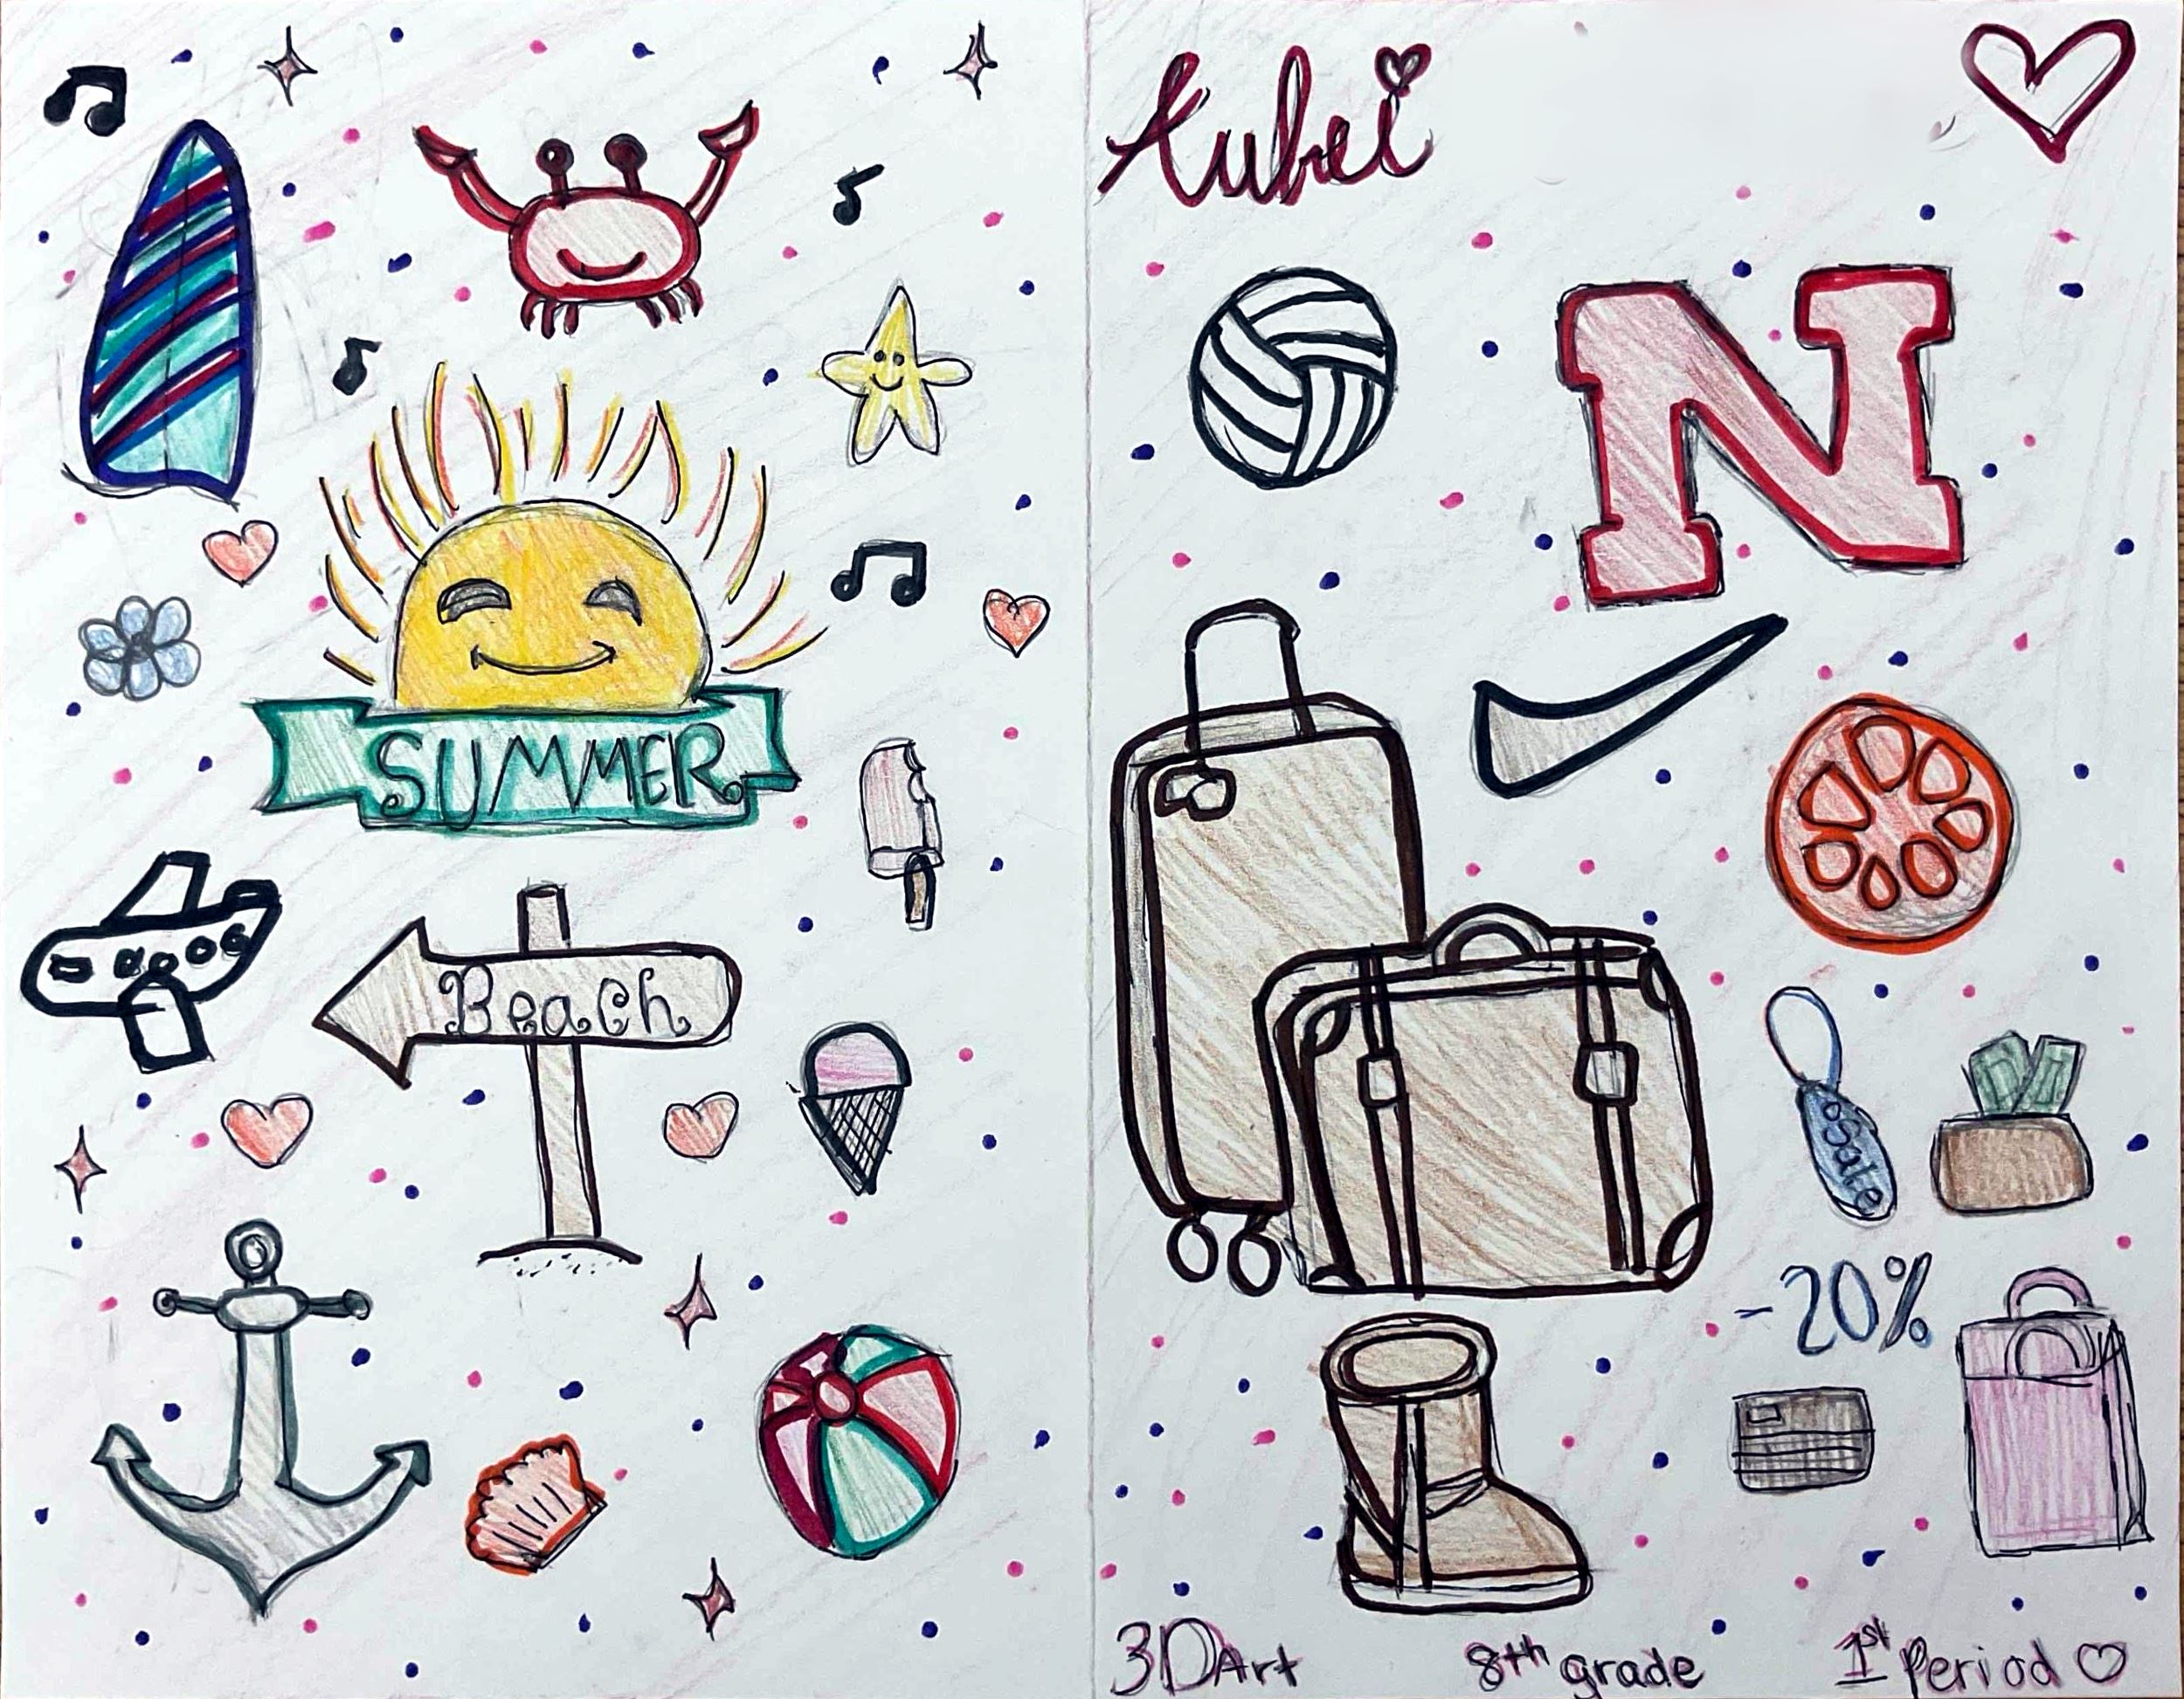 Aubei
N
SUMMER
Beach
Sale
-20%
3D Art
8th grade
1st Period